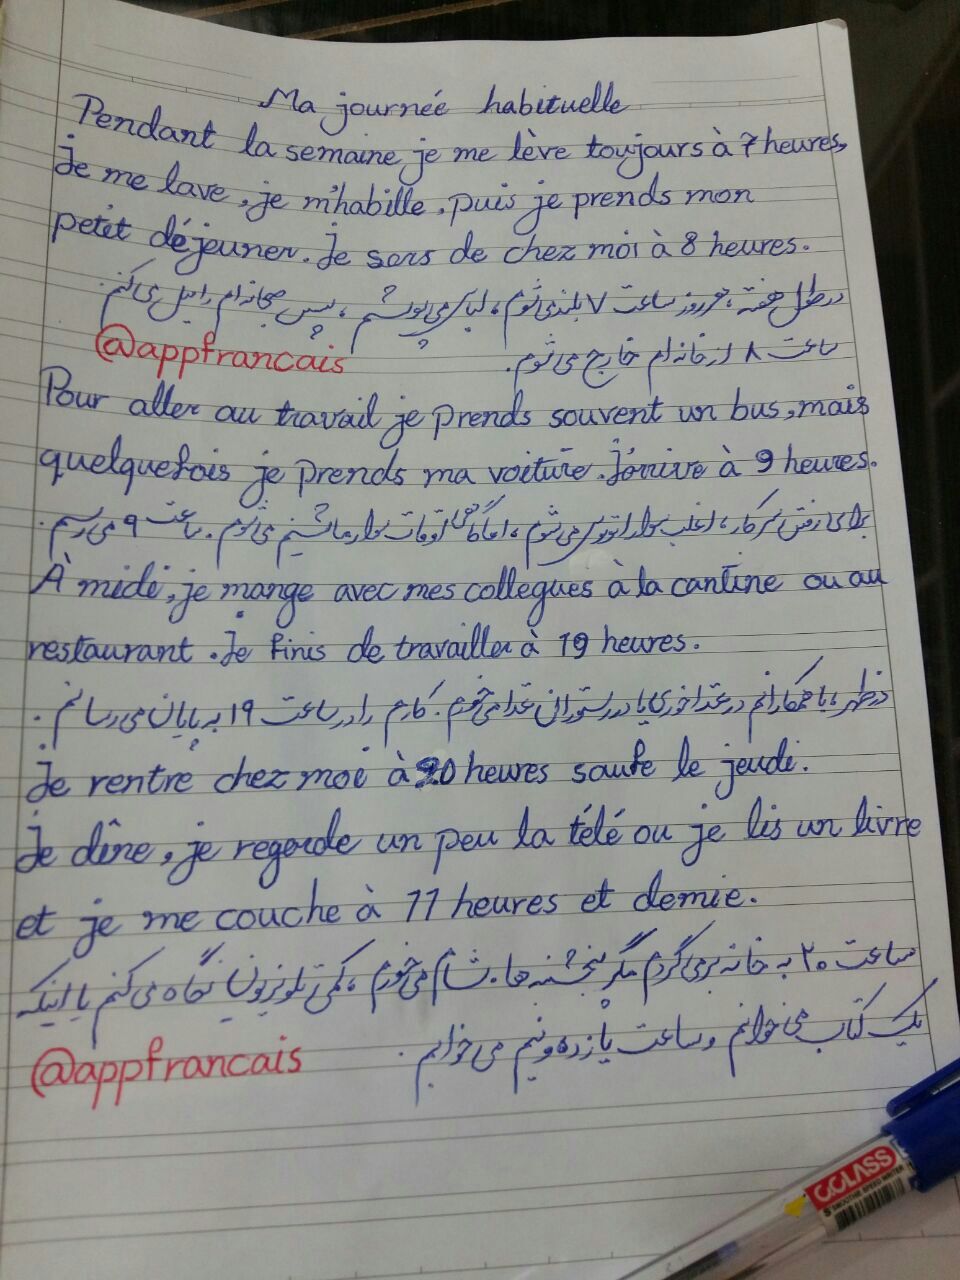 Ma journée habituelle
Pendant la semaine je me lève toujours à 7 heures,
Je me lave, je m'habille, puis je prends mon
petit déjeuner. Je sors de chez moi à 8 heures.
در طول هفته، هر روز ساعت ۷ بلند می‌شوم، لباس می‌پوشم، سپس صبحانه‌ام را میل می‌کنم.
ساعت ۸ از خانه‌ام خارج می‌شوم.
@appfrancais
Pour aller au travail je prends souvent un bus, mais
quelquefois je prends ma voiture. J'arrive à 9 heures.
برای رفتن سر کار، اغلب سوار اتوبوس می‌شوم، اما گاهی اوقات سوار ماشینم می‌شوم. ساعت ۹ می‌رسم.
À midi, je mange avec mes collegues à la cantine ou au
restaurant. Je finis de travailler à 19 heures.
در ظهر، با همکارانم در غذاخوری یا در رستورانی غذا می‌خورم. کارم را در ساعت ۱۹ به پایان می‌رسانم.
Je rentre chez moi à 20 heures saufe le jeudi.
Je dîne, je regarde un peu la télé ou je lis un livre
et je me couche à 11 heures et demie.
ساعت ۲۰ به خانه برمی‌گردم مگر پنجشنبه‌ها. شام می‌خورم، کمی تلویزیون نگاه می‌کنم یا اینکه
یک کتاب می‌خوانم و ساعت یازده و نیم می‌خوابم.
@appfrancais
C.CLASS
SMOOTHE SPEED WRITER